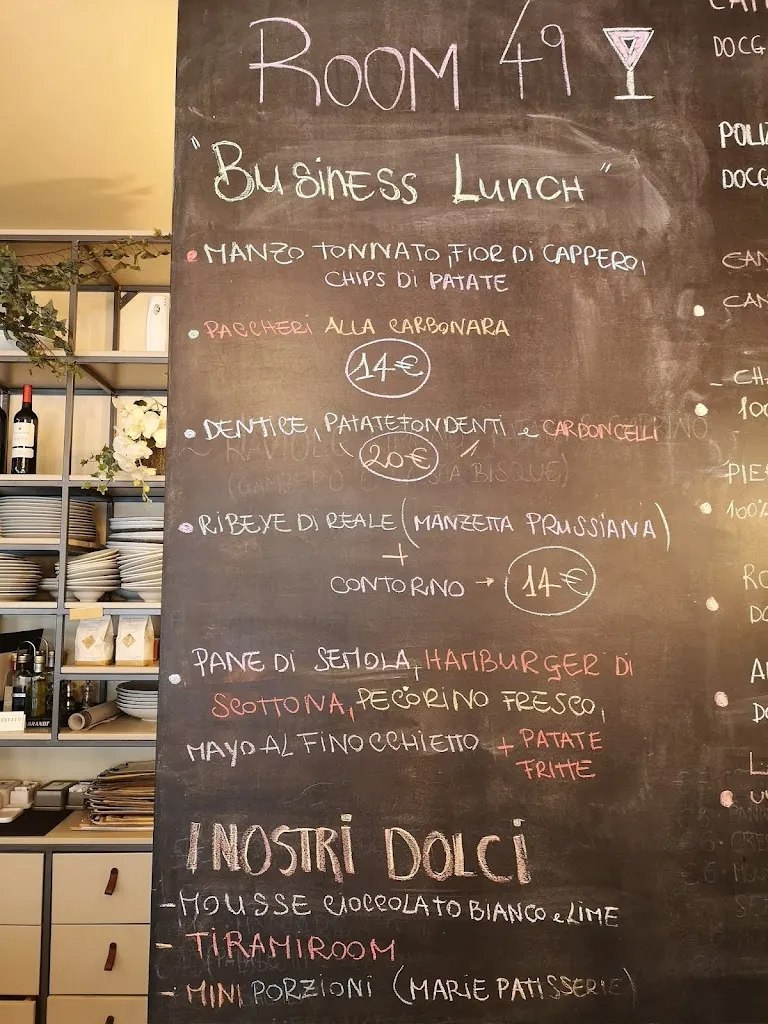 ROOM 49
"BUSINESS LUNCH"
• MANZO TONNATO, FIOR DI CAPPERO,
CHIPS DI PATATE
• PACCHERI ALLA CARBONARA
14€
• DENTICE, PATATE FONDENTI e CARDONCELLI
20€
• RIBEYE DI REALE (MANZETTA PRUSSIANA)
+
CONTORNO → 14€
• PANE DI SEMOLA, HAMBURGER DI
SCOTTONA, PECORINO FRESCO,
MAYO AL FINOCCHIETTO + PATATE
FRITTE
I NOSTRI DOLCI
- MOUSSE CIOCCOLATO BIANCO e LIME
- TIRAMIROOM
- MINI PORZIONI (MARIE PATISSERIE)
DOCG
DOCG